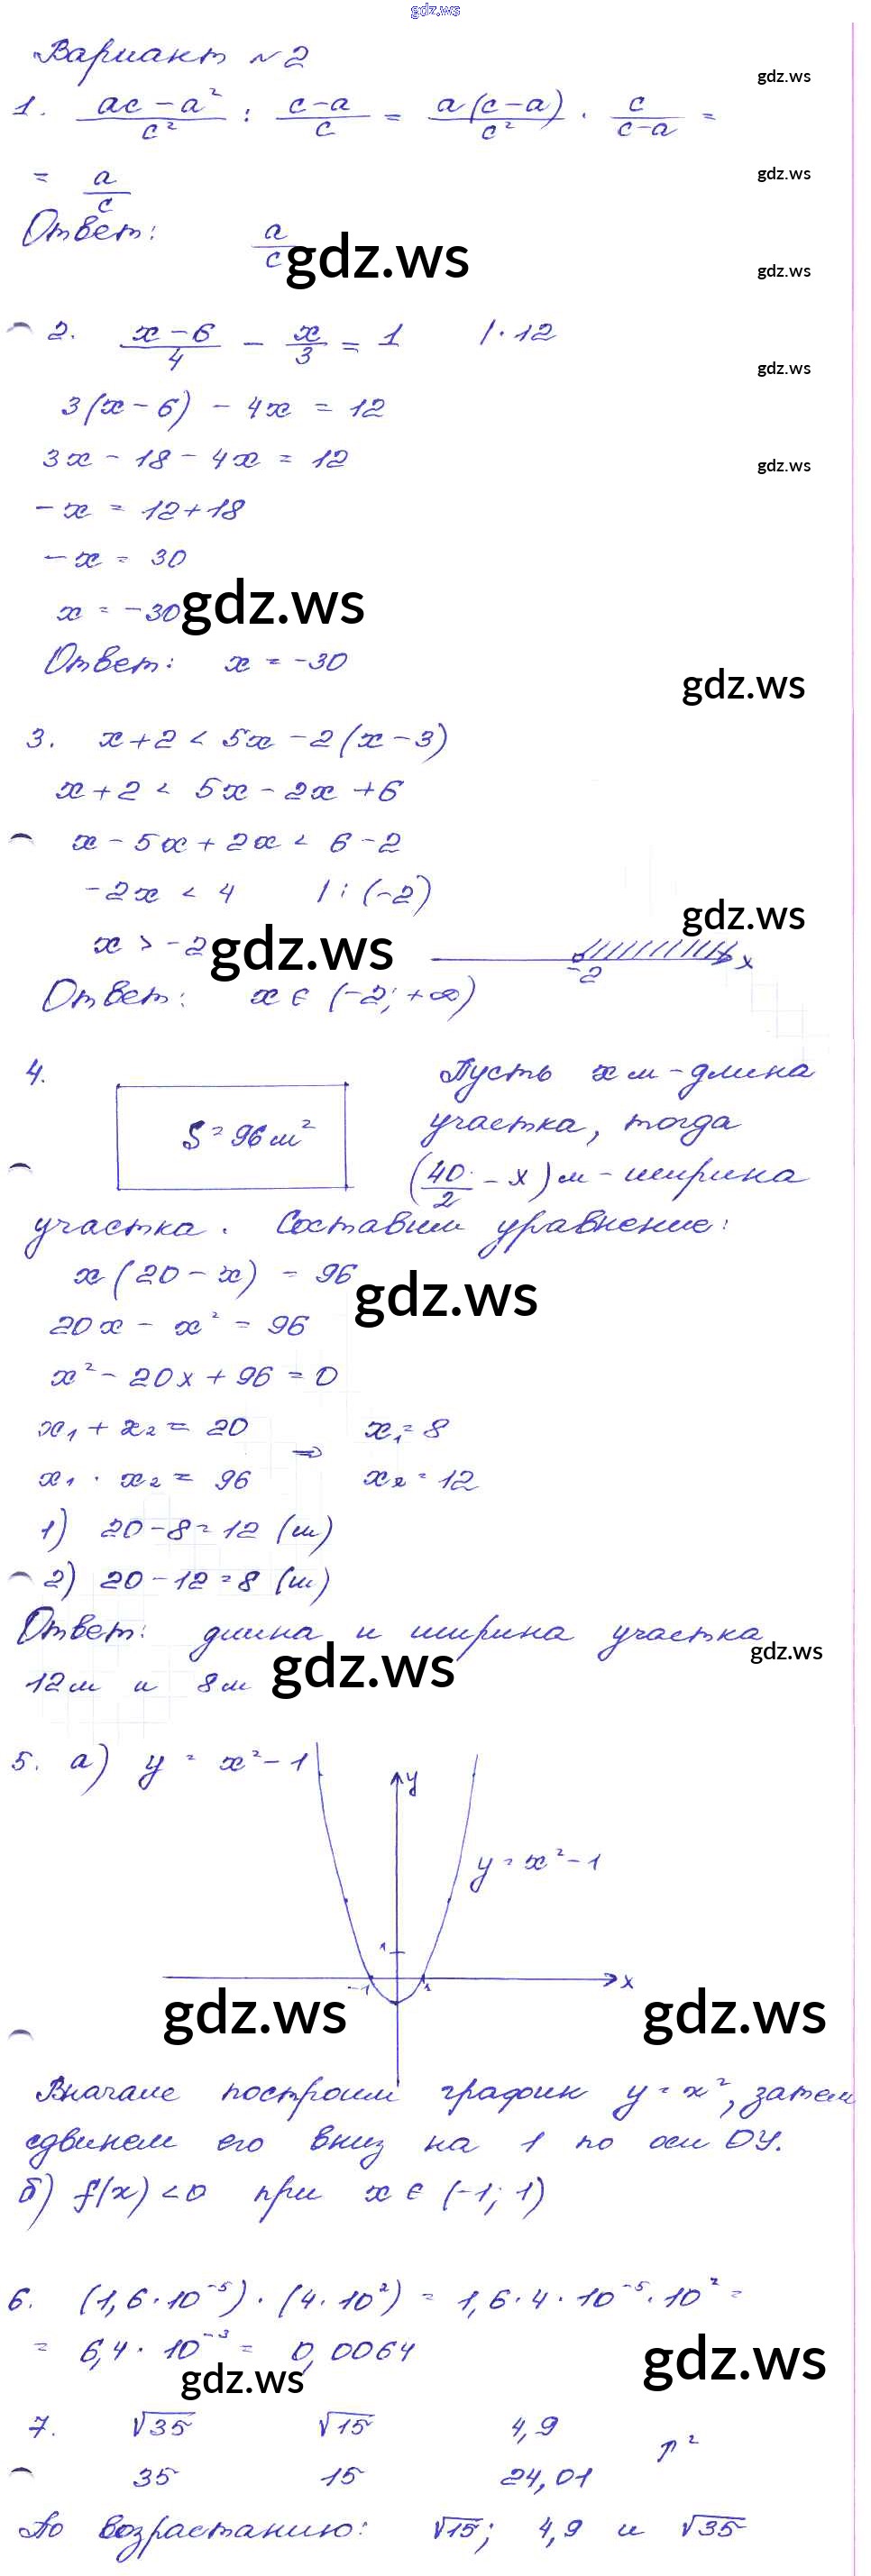 gdz.ws
Вариант №2
gdz.ws
1. (ac - a²)/c² : (c - a)/c = a(c - a)/c² · c/(c - a) =
= a/c
gdz.ws
Ответ: a/c
gdz.ws
gdz.ws
2. (x - 6)/4 - x/3 = 1 | · 12
gdz.ws
3(x - 6) - 4x = 12
3x - 18 - 4x = 12
gdz.ws
-x = 12 + 18
-x = 30
x = -30
gdz.ws
Ответ: x = -30
gdz.ws
3. x + 2 < 5x - 2(x - 3)
x + 2 < 5x - 2x + 6
x - 5x + 2x < 6 - 2
-2x < 4 | : (-2)
gdz.ws
x > -2
gdz.ws
-2 x
Ответ: x ∈ (-2; +∞)
4. Пусть x м - длина
S = 96 м² участка, тогда
(40/2 - x) м - ширина
участка. Составим уравнение:
x(20 - x) = 96
gdz.ws
20x - x² = 96
x² - 20x + 96 = 0
x₁ + x₂ = 20 ⇒ x₁ = 8
x₁ · x₂ = 96 x₂ = 12
1) 20 - 8 = 12 (м)
2) 20 - 12 = 8 (м)
Ответ: длина и ширина участка
gdz.ws
gdz.ws
12 м и 8 м
5. а) y = x² - 1
y
y = x² - 1
1
-1 1 x
gdz.ws
gdz.ws
Вначале построим график y = x², затем
сдвинем его вниз на 1 по оси OY.
б) f(x) < 0 при x ∈ (-1; 1)
6. (1,6 · 10⁻⁵) · (4 · 10²) = 1,6 · 4 · 10⁻⁵ · 10² =
= 6,4 · 10⁻³ = 0,0064
gdz.ws
gdz.ws
7. √35 √15 4,9 ↑²
35 15 24,01
По возрастанию: √15; 4,9 и √35